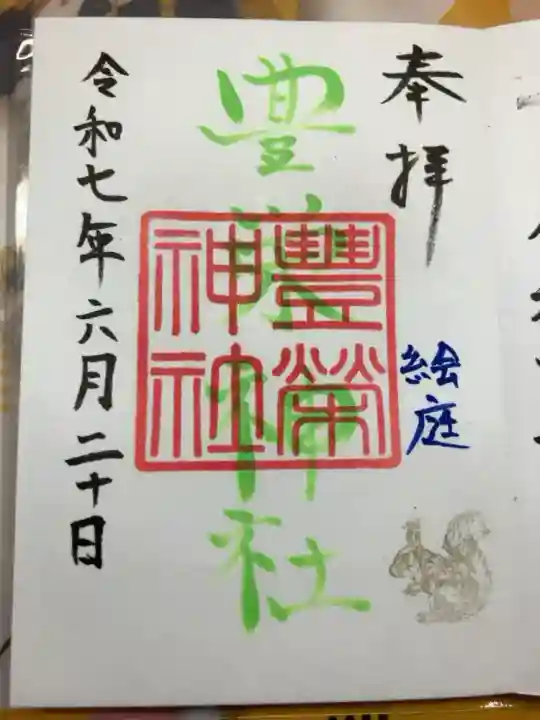 奉拝
絵庭
豊榮神社
豐榮
神社
令和七年六月二十日